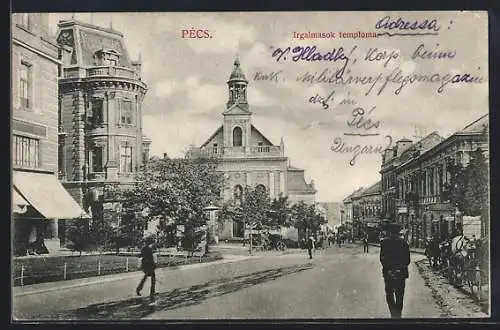 PÉCS.
Irgalmasok temploma.
Adressa:
V. Hladky, Korp. beim
kuk. Militärverpflegsmagazin
dzt. in
Pécs
Ungarn.